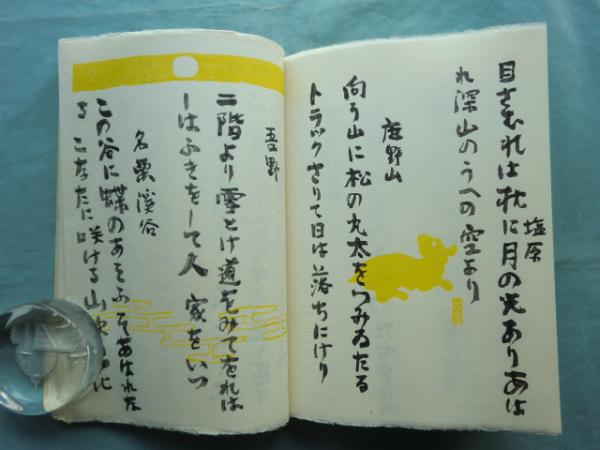 塩原
目さむれは枕に月の光ありあは
れ深山のうへの空より
鹿野山
向う山に松の丸太をつみゐたる
トラックさりて日は落ちにけり
吾野
二階より雪とけ道をみてをれは
しはふきをして人家をいつ
名栗渓谷
この谷に蝶のあそふそあはれた
る こなたに咲ける山吹の